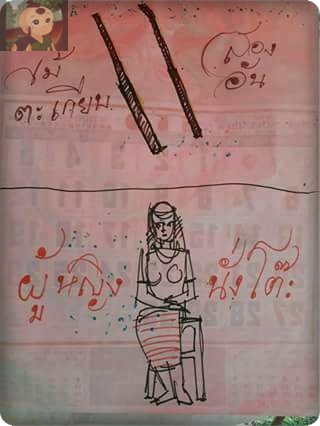 ไม้
ตะเกียบ
สอง
อัน
ผู้หญิง นั่งโต๊ะ